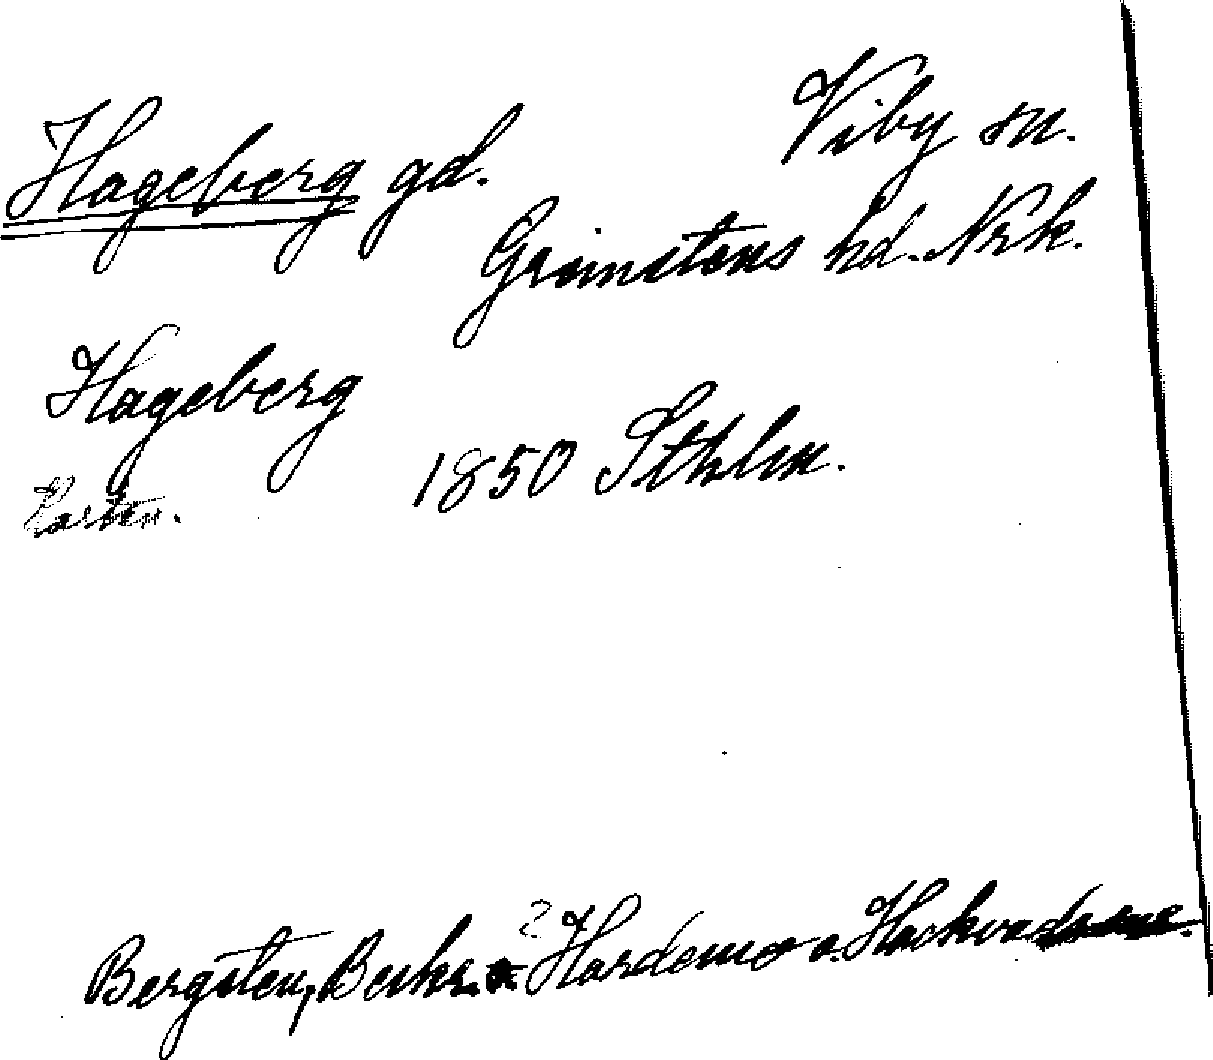 Hageberg gd. Viby sn.
Grimstens hd. Nrk.
Hageberg
1850 Sthlm.
Kartan.
Bergsten, Beskr. ? Hardemo o. Hackvad